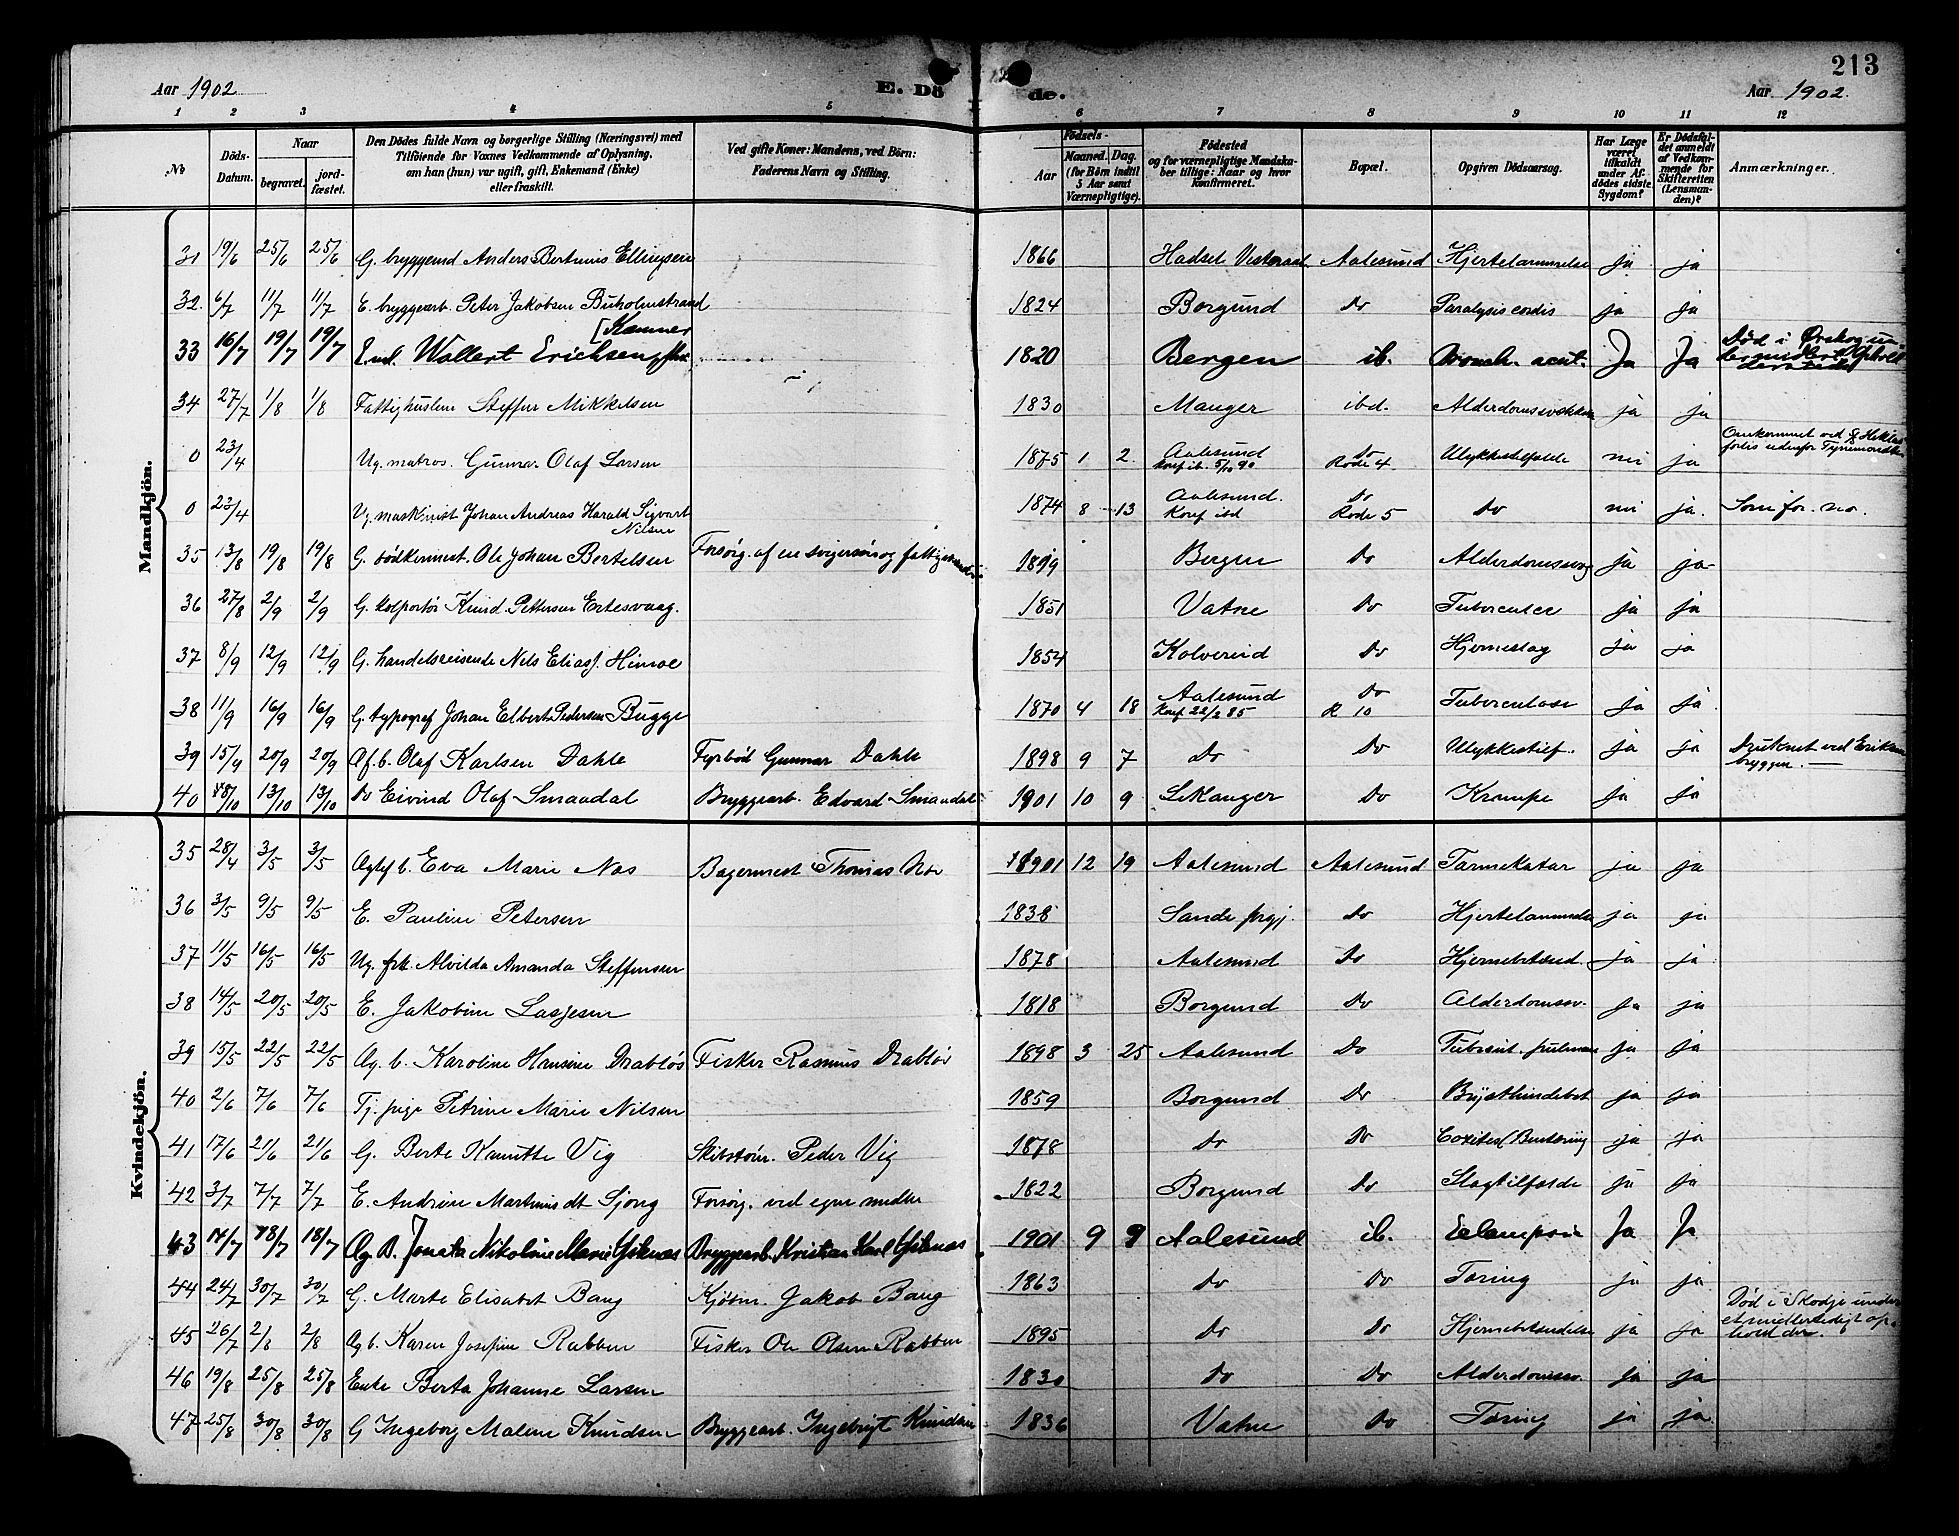 213
Aar 1902
E. Dö de.
Aar 1902.
1 2 3 4 5 6 7 8 9 10 11 12
No
Döds-Datum.
Naar
begravet.
jord-fæstet.
Den Dödes fulde Navn og borgerlige Stilling (Næringsvei) med
Tilföiende for Voxnes Vedkommende af Oplysning,
om han (hun) var ugift, gift, Enkemand (Enke)
eller fraskilt.
Ved gifte Koner: Mandens, ved Börn:
Faderens Navn og Stilling.
Födsels-
Aar
Maaned. Dag.
(for Börn indtil
5 Aar samt
Værnepligtige).
Födested
og for værnepligtige Mandska-
ber tillige: Naar og hvor
konfirmeret.
Bopæl.
Opgiven Dödsaarsag.
Har Læge
været
tilkaldt
under Af-
dödes sidste
Sygdom?
Er Dödsfal-
det anmeldt
af Vedkom-
mende for
Skifteretten
(Lensman-
den)?
Anmærkninger.
Mandkjön.
31 19/6 25/6 25/6 G. bryggemd Anders Bertinus Ellingsen 1866 Hadsel Aalesund Hjertelammelse ja ja
32. 6/7 11/7 11/7 E. bryggearb. Peter Jakobsen Buholmstrand 1824 Borgund Do Paralysis cordis ja ja
33 16/7 19/7 19/7 E.md. Wollert Erichsen [Kæmner 1820 Bergen ib. Bronch. acut. Ja Ja Död i Ørskog un-
34 27/7 1/8 1/8 Fattighuslem Steffen Mikkelsen 1830 Manger ibd. ja ja
0 23/4 Ug. matros. Gunnar Olaf Larsen 1875 1 2 Aalesund Konf. ib. 5/10 90 Do Rode 4 Ulykkestilfælde nei ja Omkommet ved
0 23/4 Ug. maskinist Johan Andreas Harald Sigvart Nilsen 1874 8 13 Aalesund. Konf ibd Do Rode 5 Do nei ja. Som for. no.
35 13/8 19/8 19/8 G. bödkermest. Ole Johan Bertelsen Forsörg. af en svigersön og 1819 Bergen Do Alderdomssvag ja ja
36 27/8 2/9 2/9 G. kolportör Knud Pettersen Ertesvaag. 1851 Vatne Do ja ja
37 8/9 12/9 12/9 G. handelsreisende Nels Eliasf. Himoe 1854 Kolvereid Do Hjerneslag ja ja
38 11/9 16/9 16/9 G. typograf Johan Elbert Pedersen Bugge 1870 4 18 Aalesund Konf 22/2 85 Do R 10 Tuberculose ja ja
39 15/9 20/9 20/9 Af. b. Olaf Karlsen Dahle Fyrböd Gunnar Dahle 1898 9 7 Do Do Ulykkestilf. ja ja Druknet ved
40 8/10 13/10 13/10 Do Eivind Olaf Smaadal Bryggearb. Edvard Smaadal 1901 10 9 Selkanger Do Krampe ja ja
Kvindekjön.
35 28/4 3/5 3/5 Agtef b. Eva Marie Nos Bagermest Thomas Nos 1901 12 19 Aalesund Aalesund Tarmekatar ja ja
36 3/5 9/5 9/5 E. Pauline Petersen 1838 Sande prgj. Do Hjertelammelse ja ja
37 11/5 16/5 16/5 Ug. frk. Alvilda Amanda Steffensen 1878 Aalesund Do Hjernebetænd. ja ja
38 14/5 20/5 20/5 E. Jakobine Lasjesen 1818 Borgund Do Alderdomssv. ja ja
39 15/5 22/5 22/5 Ag. b. Karoline Hansine Drabløs Fisker Rasmus Drabløs 1898 3 25 Aalesund Do ja ja
40 2/6 7/6 7/6 Tj. pige Petrine Marie Nilsen 1859 Borgund Do ja ja
41 17/6 21/6 21/6 G. Berte Knutte Vig Skibstöm. Peder Vig 1878 Do Do ja ja
42 3/7 7/7 7/7 E. Andrine Martinusdt Sjong Forsörg. ved egne midler 1822 Borgund Do Slagtilfælde ja ja
43 14/7 18/7 18/7 Ag. B. Jonata Nikoline Marie Giknæs Bryggearb. Kristian Karl Giknæs 1901 9 9 Aalesund ib. Eclampsia Ja Ja
44 24/7 30/7 30/7 G. Marte Elisabet Bang Kjöbm. Jakob Bang 1863 Do Do Tæring ja ja
45 26/7 2/8 2/8 Ag b. Karen Josefine Rabben Fisker Ole Olsen Rabben 1895 Do Do Hjernebetændelse ja ja Död i Skodje under et midlertidigt op-hold der.
46 19/8 25/8 25/8 Enke Berta Johanne Larsen 1830 Do Do Alderdomssv. ja ja
47 25/8 30/8 30/8 G Ingeborg Maline Knudsen Bryggearb. Ingebrigt Knudsen 1836 Vatne Do Tæring ja ja